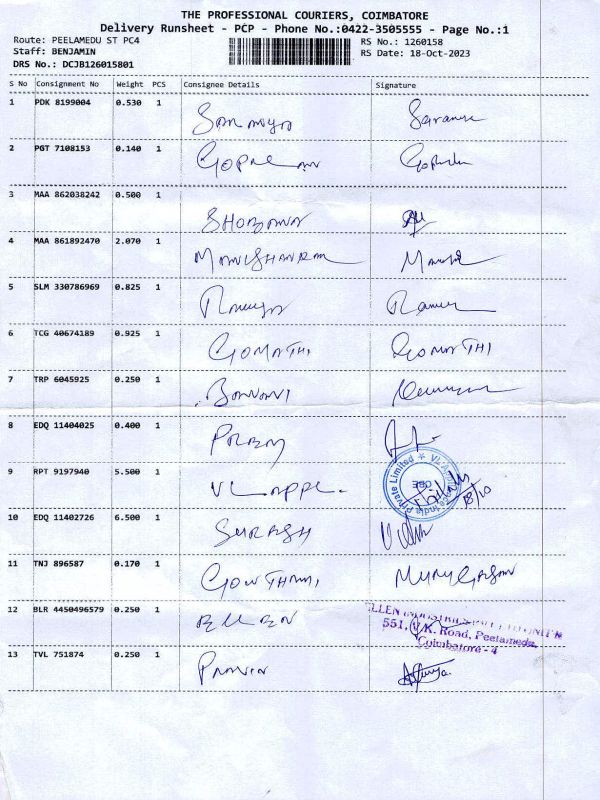 THE PROFESSIONAL COURIERS, COIMBATORE
Delivery Runsheet - PCP - Phone No.:0422-3505555 - Page No.:1
Route: PEELAMEDU ST PC4 RS No.: 1260158
Staff: BENJAMIN RS Date: 18-Oct-2023
DRS No.: DCJB126015801
S No Consignment No Weight PCS Consignee Details Signature
1 PDK 8199004 0.530 1
2 PGT 7108153 0.140 1
GOPALAN
3 MAA 862038242 0.500 1
SHOBANA
4 MAA 861892470 2.070 1
5 SLM 330786969 0.825 1
Ramya
6 TCG 40674189 0.925 1
GOMATHI GOMATHI
7 TRP 6045925 0.250 1
8 EDQ 11404025 0.400 1
9 RPT 9197940 5.500 1
VL Appliance India Private Limited
CBE
18/10
10 EDQ 11402726 6.500 1
SURESH
11 TNJ 896587 0.170 1
GOWTHAMI
12 BLR 4450496579 0.250 1
ELLEN INDUSTRIES
551, V.K. Road, Peelamedu,
Coimbatore - 4
13 TVL 751874 0.250 1
PRAVIN